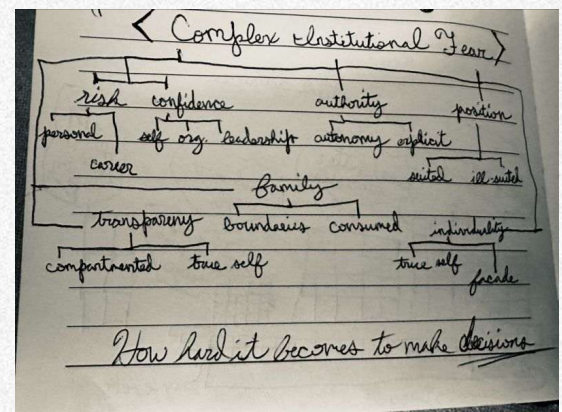 " < Complex Institutional Fear >
risk confidence authority position
personal self org. leadership autonomy explicit
career suited ill-suited
family
transpareny boundaries consumed individuality
compartmented true self true self facade
How hard it becomes to make decisions